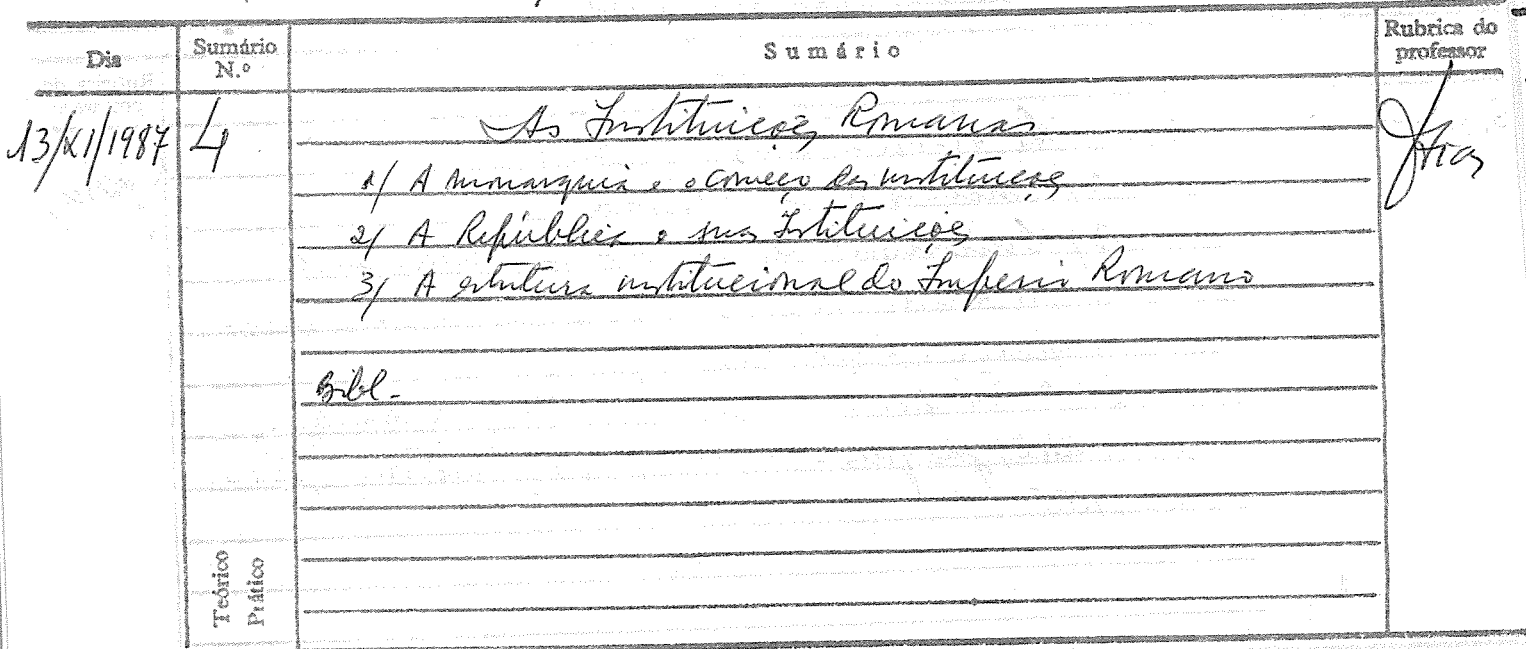 Dia
Sumário N.º
Sumário
Rubrica do professor
13/XI/1987
4
As Instituições Romanas
1/ A monarquia e o começo das instituições
2/ A República e suas Istituições
3/ A estrutura institucional do Imperio Romano
Bibl.-
Teórico
Prático